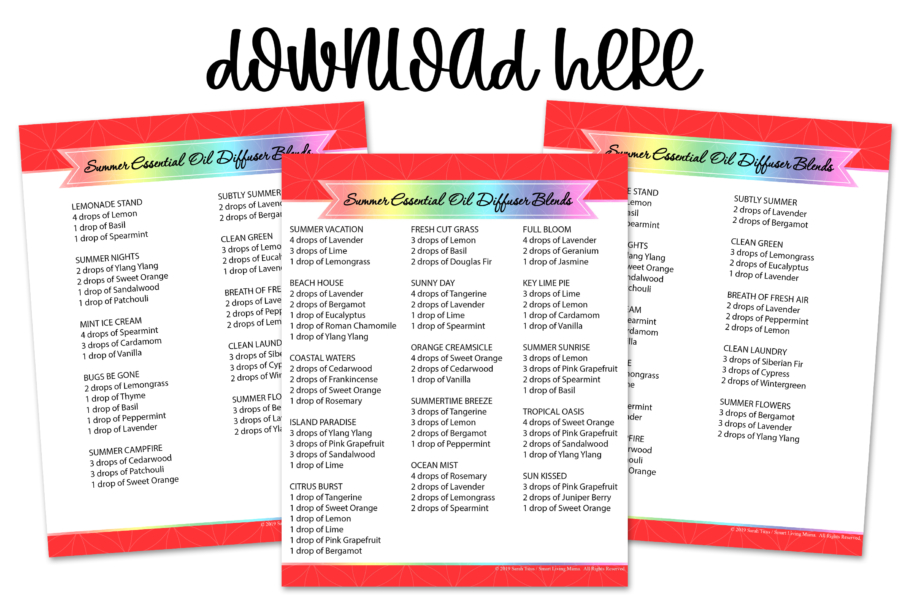 download here
Summer Essential Oil Diffuser Blends
LEMONADE STAND
4 drops of Lemon
1 drop of Basil
1 drop of Spearmint
SUMMER NIGHTS
2 drops of Ylang Ylang
2 drops of Sweet Orange
1 drop of Sandalwood
1 drop of Patchouli
MINT ICE CREAM
4 drops of Spearmint
3 drops of Cardamom
1 drop of Vanilla
BUGS BE GONE
2 drops of Lemongrass
1 drop of Thyme
1 drop of Basil
1 drop of Peppermint
1 drop of Lavender
SUMMER CAMPFIRE
3 drops of Cedarwood
3 drops of Patchouli
1 drop of Sweet Orange
SUBTLY SUMMER
2 drops of
2 drops of
CLEAN GREEN
3 drops of
2 drops of
1 drop of
BREATH OF
2 drops of
2 drops of
2 drops of
CLEAN
3 drops of
3 drops of
2 drops of
SUMMER
3 drops of
3 drops of
2 drops of
© 2019
Summer Essential Oil Diffuser Blends
SUMMER VACATION
4 drops of Lavender
3 drops of Lime
1 drop of Lemongrass
BEACH HOUSE
2 drops of Lavender
2 drops of Bergamot
1 drop of Eucalyptus
1 drop of Roman Chamomile
1 drop of Ylang Ylang
COASTAL WATERS
2 drops of Cedarwood
2 drops of Frankincense
2 drops of Sweet Orange
1 drop of Rosemary
ISLAND PARADISE
3 drops of Ylang Ylang
3 drops of Pink Grapefruit
3 drops of Sandalwood
1 drop of Lime
CITRUS BURST
1 drop of Tangerine
1 drop of Sweet Orange
1 drop of Lemon
1 drop of Lime
1 drop of Pink Grapefruit
1 drop of Bergamot
FRESH CUT GRASS
3 drops of Lemon
2 drops of Basil
2 drops of Douglas Fir
SUNNY DAY
4 drops of Tangerine
2 drops of Lavender
1 drop of Lime
1 drop of Spearmint
ORANGE CREAMSICLE
4 drops of Sweet Orange
2 drops of Cedarwood
1 drop of Vanilla
SUMMERTIME BREEZE
3 drops of Tangerine
3 drops of Lemon
2 drops of Bergamot
1 drop of Peppermint
OCEAN MIST
4 drops of Rosemary
2 drops of Lavender
2 drops of Lemongrass
2 drops of Spearmint
FULL BLOOM
4 drops of Lavender
2 drops of Geranium
1 drop of Jasmine
KEY LIME PIE
3 drops of Lime
2 drops of Lemon
1 drop of Cardamom
1 drop of Vanilla
SUMMER SUNRISE
3 drops of Lemon
3 drops of Pink Grapefruit
2 drops of Spearmint
1 drop of Basil
TROPICAL OASIS
4 drops of Sweet Orange
3 drops of Pink Grapefruit
2 drops of Sandalwood
1 drop of Ylang Ylang
SUN KISSED
3 drops of Pink Grapefruit
2 drops of Juniper Berry
1 drop of Sweet Orange
Essential Oil Diffuser Blends
STAND
Ylang
Sweet Orange
Orange
SUBTLY SUMMER
2 drops of Lavender
2 drops of Bergamot
CLEAN GREEN
3 drops of Lemongrass
2 drops of Eucalyptus
1 drop of Lavender
BREATH OF FRESH AIR
2 drops of Lavender
2 drops of Peppermint
2 drops of Lemon
CLEAN LAUNDRY
3 drops of Siberian Fir
3 drops of Cypress
2 drops of Wintergreen
SUMMER FLOWERS
3 drops of Bergamot
3 drops of Lavender
2 drops of Ylang Ylang
All Rights Reserved.